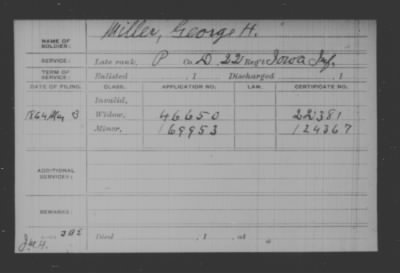 NAME OF SOLDIER: Miller, George H.
SERVICE: Late rank, P Co. D, 22 Reg't Iowa Inf.
TERM OF SERVICE: Enlisted , 1 Discharged , 1
DATE OF FILING. CLASS. APPLICATION NO. LAW. CERTIFICATE NO.
Invalid,
1864 May 3 Widow, 46650 22381
Minor, 169953 124367
ADDITIONAL SERVICES:
REMARKS:
Died , 1 , at